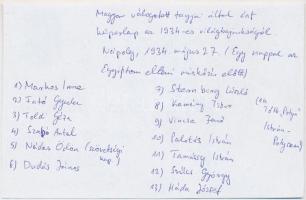 Magyar válogatott tagjai által írt
képeslap az 1934-es világbajnokságról
Nápoly, 1934 május 27. (Egy nappal az
Egyiptom elleni mérkőzés előtt)
1) Markos Imre
2) Tátó Gyula
3) Toldi Géza
4) Szabó Antal
5) Nádas Ödön (szövetségi kap.)
6) Dudás János
7) Sternberg László
8) Kemény Tibor
9) Vincze Jenő
10) Palotás István
11) Tamássy István
12) Szűcs György
13) Háda József
István-